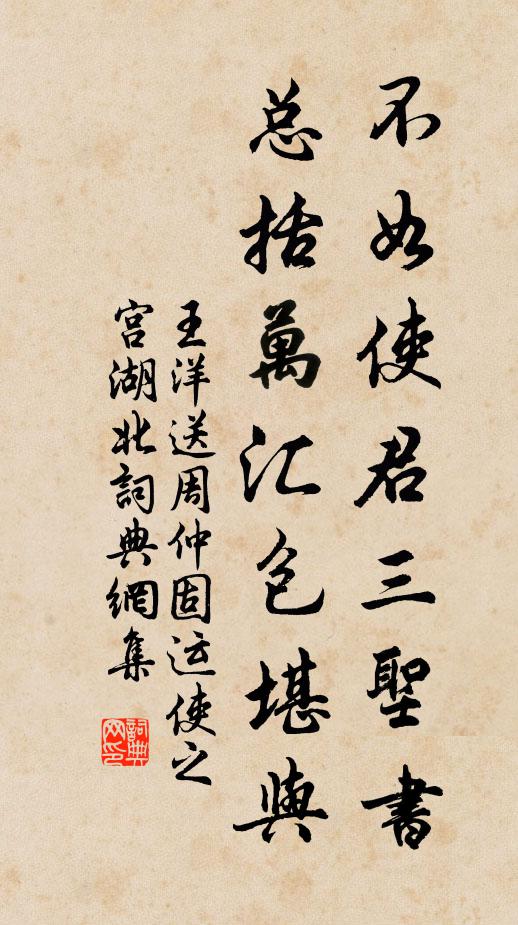 不如使君三聖書
总括萬汇包堪輿
王洋送周仲固运使之
宫湖北詞典網集
詞典
网印